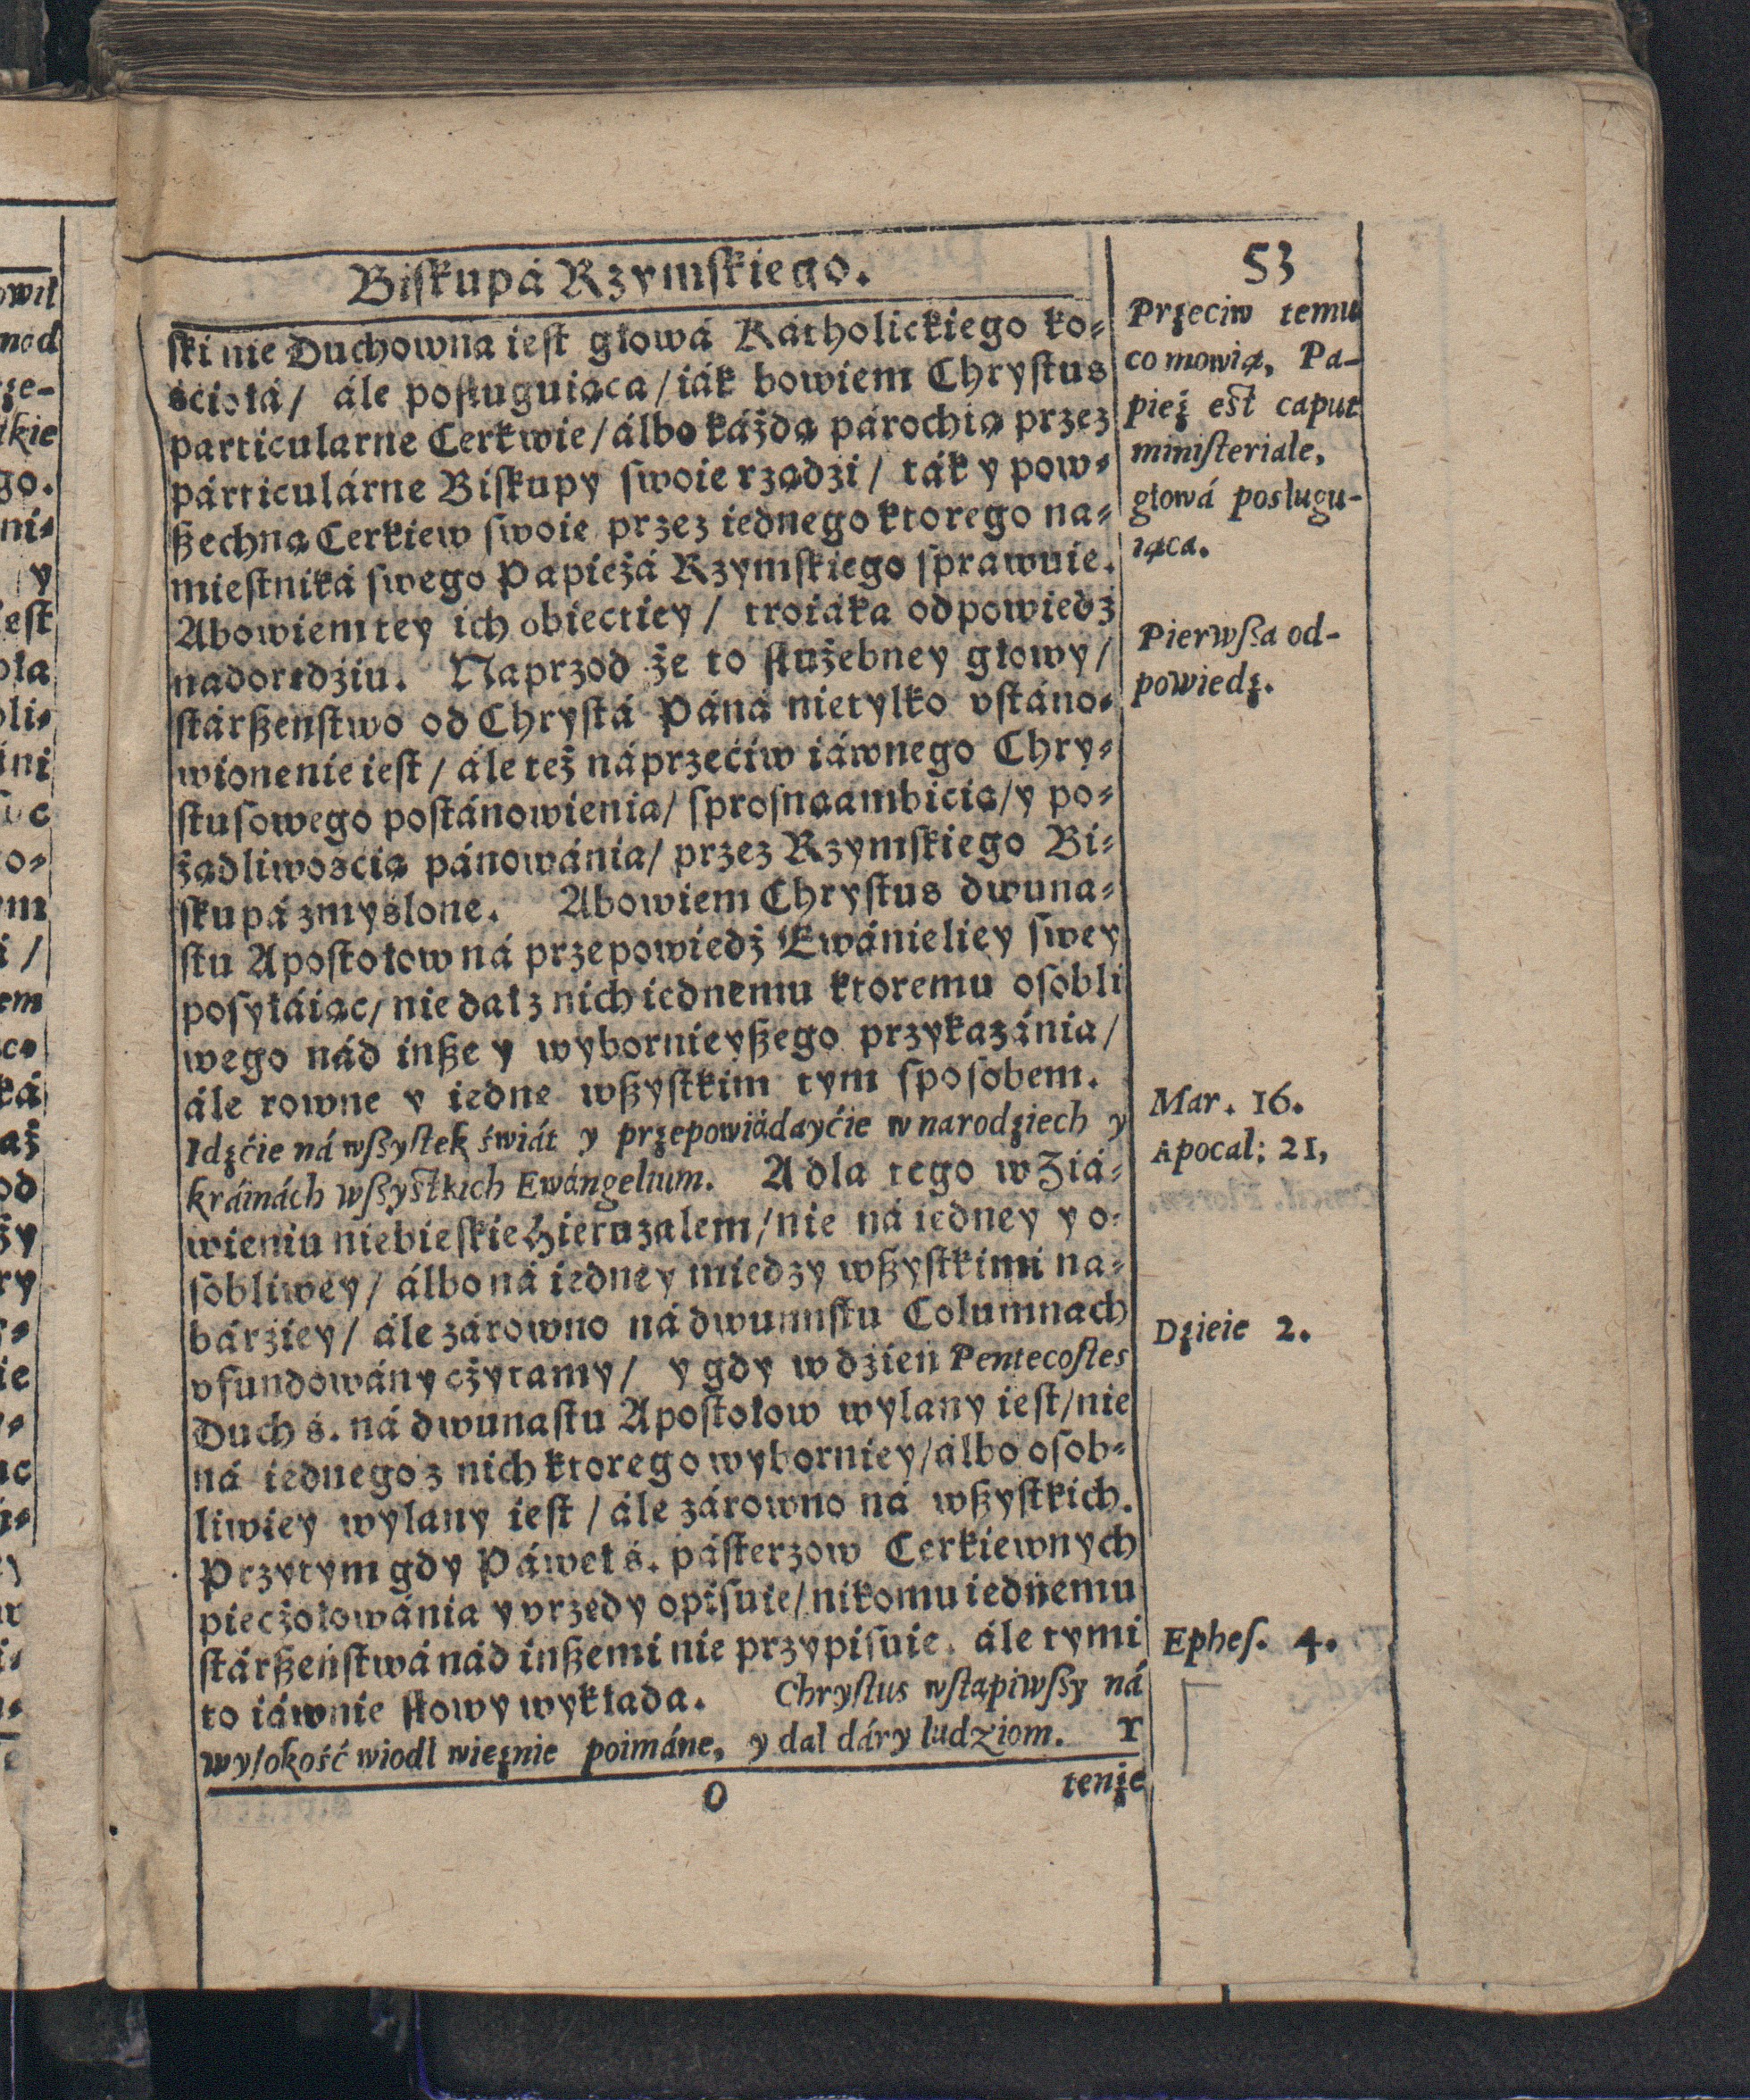 Biſkupá Rzymſkiego.
53
ſki nie Duchowna ieſt głowá Kátholickiego ko⸗
śćiołá / ále poſługuiąca / iák bowiem Chryſtus
particularne Cerkwie / álbo káżdą párochią przez
párticulárne Biſkupy ſwoie rządzi / ták y pow⸗
ßechną Cerkiew ſwoię przez iednego ktorego na⸗
mieſtniká ſwego Papieżá Rzymſkiego ſprawuie.
Abowiem tey ich obiectiey / troiáka odpowiedź
nadorędziu. Naprzod że to ſłużebney głowy /
ſtárßenſtwo od Chryſtá Páná nietylko vſtáno⸗
wione nie ieſt / ále też náprzećiw iáwnego Chry⸗
ſtuſowego poſtánowienia / ſproſną ambicią / y po⸗
żądliwoscią pánowánia / przez Rzymſkiego Bi⸗
ſkupá zmyslone. Abowiem Chryſtus dwuna⸗
ſtu Apoſtołow ná przepowiedź Ewánieliey ſwey
poſyłáiąc / nie dał z nich iednemu ktoremu oſobli
wego nád inße y wybornieyßego przykazánia /
ále rowne y iedne wßyſtkim tym ſpoſobem.
Idźćie ná wſßyſtek świát y przepowiádayćie w narodziech y
kráinách wſßyſtkich Ewángelium. A dla tego w Ziá⸗
wieniu niebieſkie Hieruzalem / nie ná iedney y o⸗
ſobliwey / álbo ná iedney miedzy wßyſtkimi na⸗
bárziey / ále zárowno ná dwunnſtu Columnach
vfundowány czytamy / y gdy w dzień Pentecoſtes
Duch ś. ná dwunaſtu Apoſtołow wylany ieſt / nie
ná iednego z nich ktorego wyborniey / álbo oſob⸗
liwiey wylany ieſt / ále zárowno ná wßyſtkich.
Przytym gdy Páweł ś. páſterzow Cerkiewnych
pieczołowánia y vrzędy opiſuie / nikomu iednemu
ſtárßeńſtwá nád inßemi nie przypiſuie. ále tymi
to iáwnie ſłowy wykłada. Chryſtus wſtąpiwſßy ná
wyſokość wiodł więźnie poimáne, y dał dáry ludziom. T
O
tenże
Przeciw temu
co mowią, Pa-
pież eſt caput
miniſteriale,
głowá poſługu-
iąca.
Pierwſßa od-
powiedź.
Mar. 16.
Apocal: 21,
Dzieie 2.
Epheſ. 4.